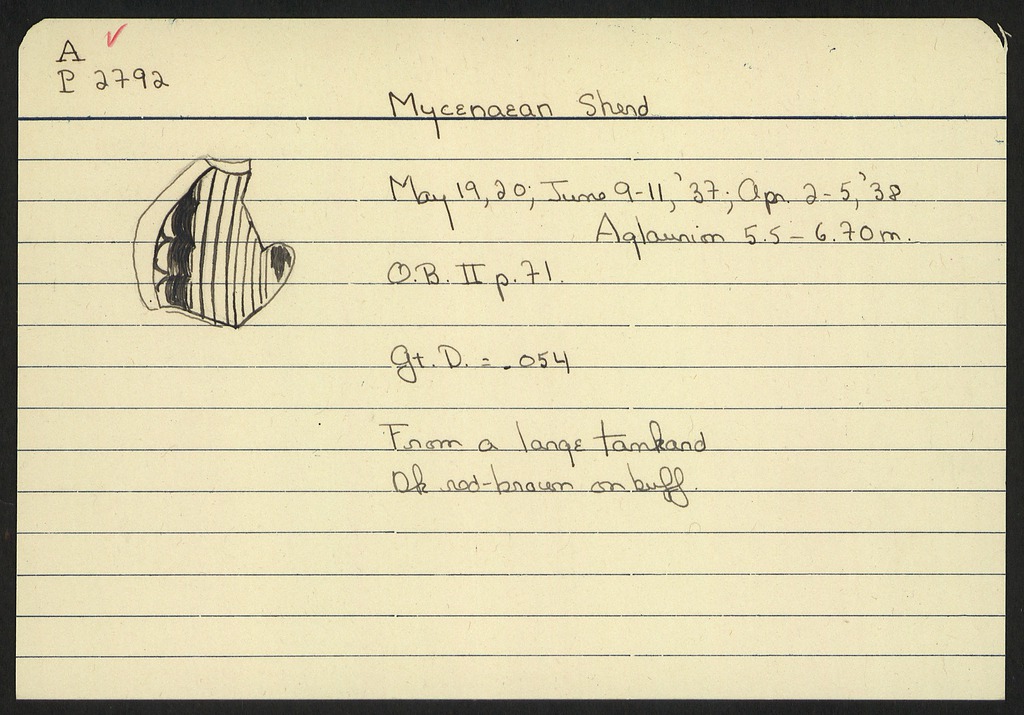 A
P 2792
Mycenaean Sherd
May 19, 20; June 9-11, '37; Apr. 2-5, '38
Aglaurion 5.5 - 6.70 m.
O.B. II p. 71.
Gt. D. = .054
From a large tankard
Dk red-brown on buff.